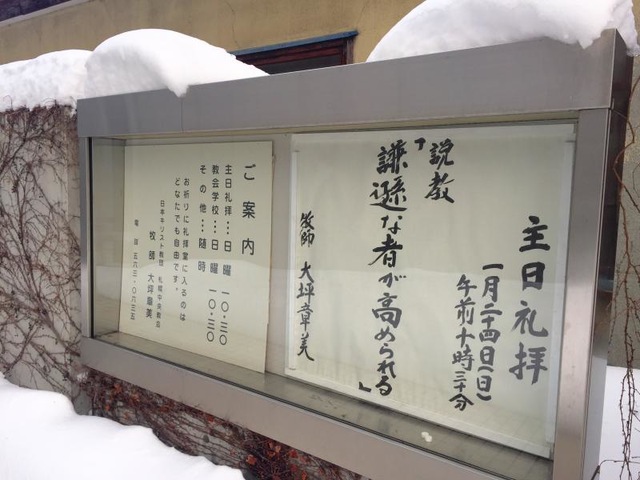 主日礼拝
一月二十四日(日)
午前十時三十分
説教
「謙遜な者が高められる」
牧師 大坪章美
ご案内
主日礼拝…日曜 一〇.三〇
教会学校…日曜 一〇.三〇
その他…随時
お祈りに礼拝堂に入るのは
どなたでも自由です。
日本キリスト教団 札幌中央教会
牧師 大坪章美
電話 五六三-〇六三五